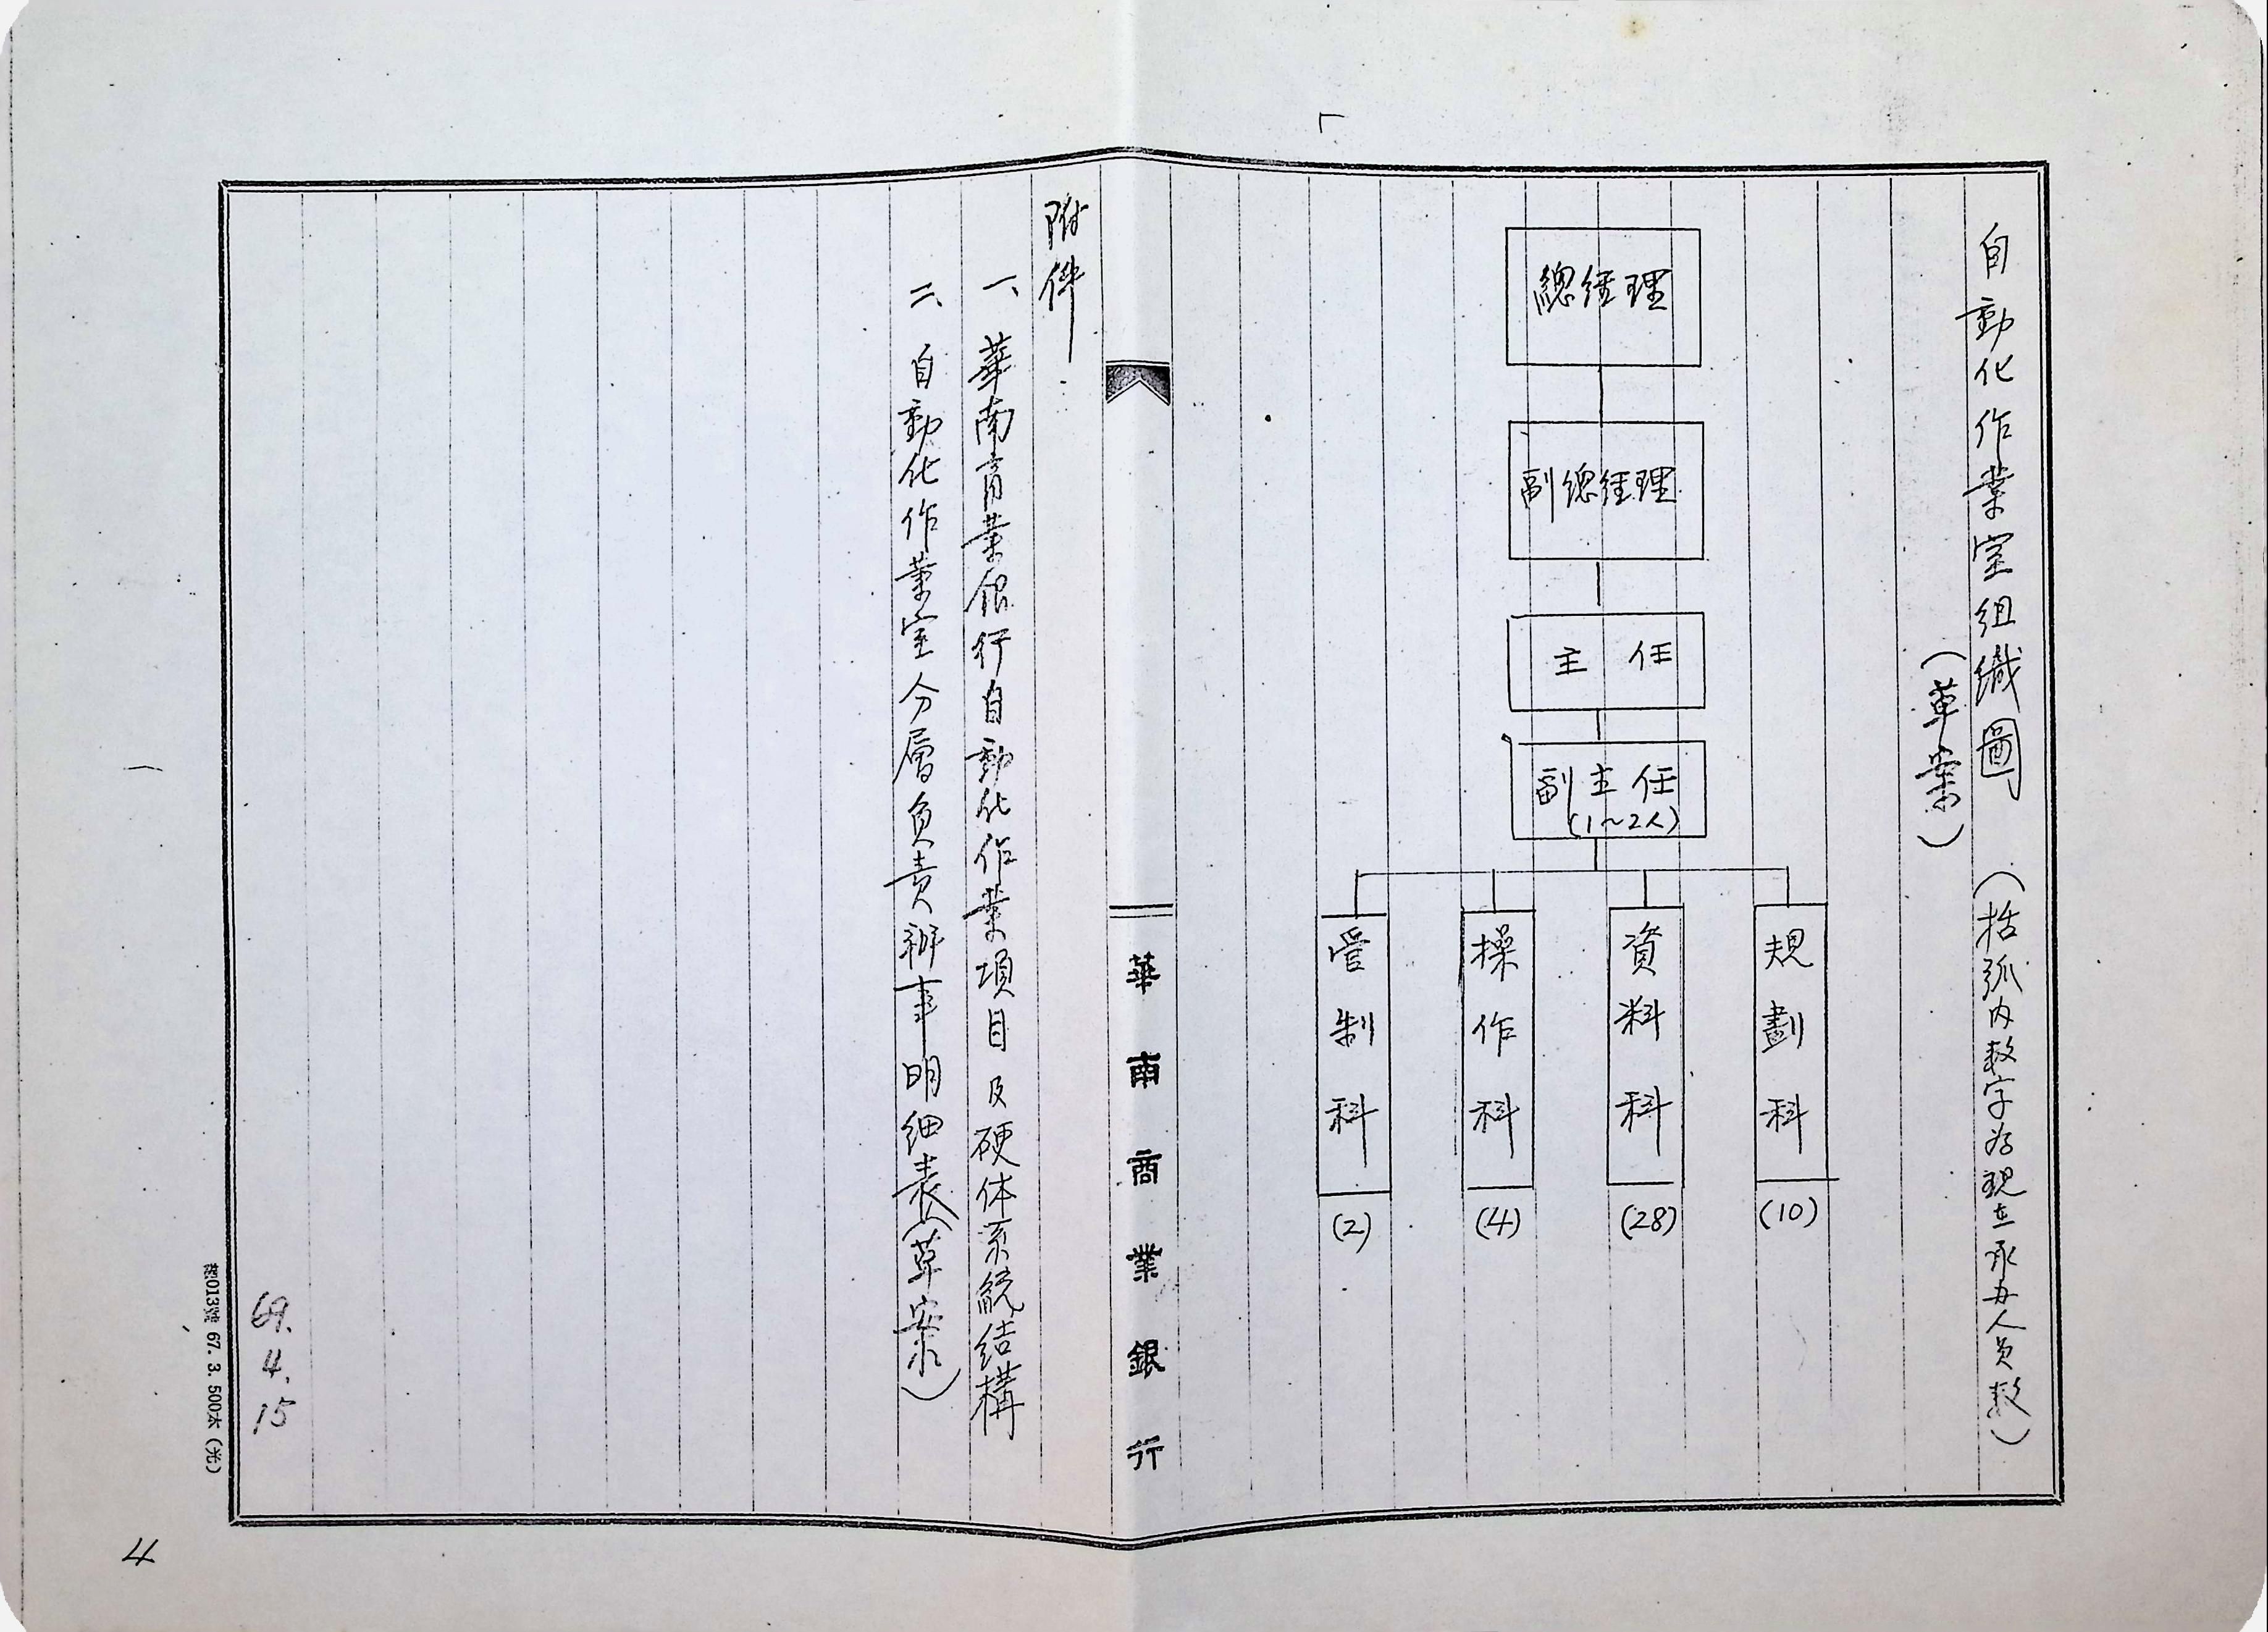 自動化作業室組織圖 (括弧內数字為現在承办人員数)
(草案)
總經理
副總經理
主任
副主任
(1~2人)
規劃科
(10)
資料科
(28)
操作科
(4)
管制科
(2)
華南商業銀行
附件:
一、華南商業銀行自動化作業項目及硬体系統结構
二、自動化作業室分層負責辦事明細表(草案)
69.4.15
013號 67. 3. 500本 (光)
4